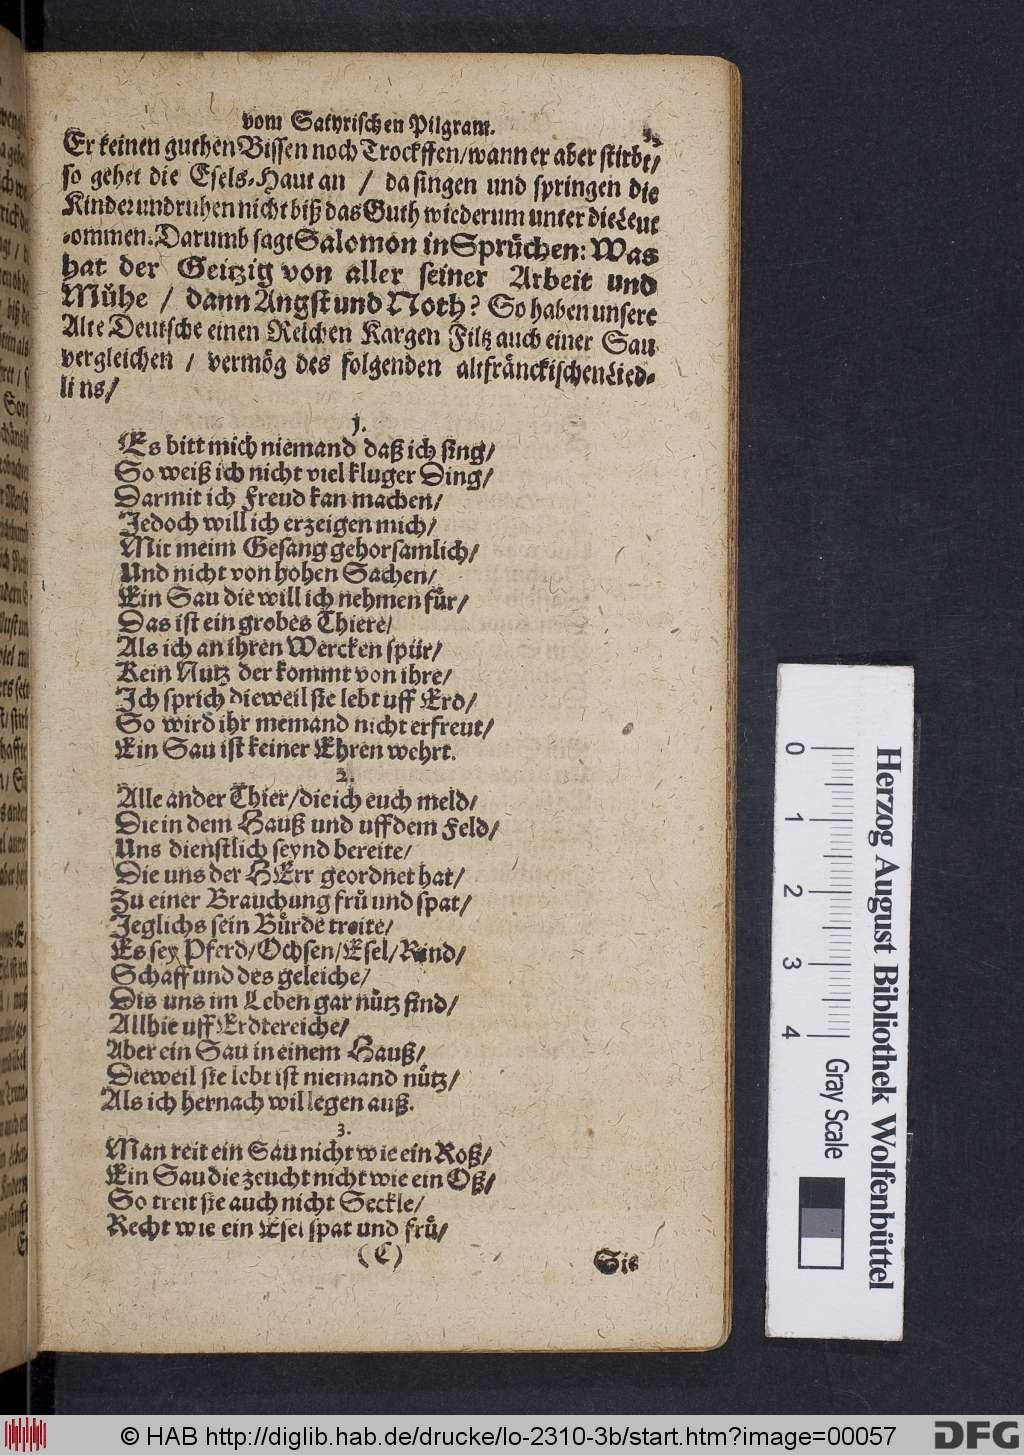 vom Satyrischen Pilgram.
Er keinen guthen Bissen noch Trockffen/ wann er aber stirbt/
so gehet die Esels-Haut an / da singen und springen die
Kinder und ruhen nicht biß das Guth wiederum unter die Leut
kommen. Darumb sagt Salomon in Sprüchen: Was
hat der Geitzig von aller seiner Arbeit und
Mühe / dann Angst und Noth? So haben unsere
Alte Deutsche einen Reichen Kargen Filtz auch einer Sau
vergleichen / vermög des folgenden altfränckischen Lied-
lins/
1.
Es bitt mich niemand daß ich sing/
So weiß ich nicht viel kluger Ding/
Darmit ich Freud kan machen/
Jedoch will ich erzeigen mich/
Mit meim Gesang gehorsamlich/
Und nicht von hohen Sachen/
Ein Sau die will ich nehmen für/
Das ist ein grobes Thiere/
Als ich an ihren Wercken spür/
Kein Nutz der kommt von ihre/
Ich sprich dieweil sie lebt uff Erd/
So wird ihr niemand nicht erfreut/
Ein Sau ist keiner Ehren wehrt.
2.
Alle ander Thier/ die ich euch meld/
Die in dem Hauß und uff dem Feld/
Uns dienstlich seynd bereite/
Die uns der HErr geordnet hat/
Zu einer Brauchung frü und spat/
Jeglichs sein Bürde treite/
Es sey Pferd/ Ochsen/ Esel/ Rind/
Schaff und des geleiche/
Dis uns im Leben gar nütz sind/
Allhie uff Erdtereiche/
Aber ein Sau in einem Hauß/
Dieweil sie lebt ist niemand nütz/
Als ich hernach will legen auß.
3.
Man reit ein Sau nicht wie ein Roß/
Ein Sau die zeucht nicht wie ein Oß/
So treit sie auch nicht Seckle/
Recht wie ein Esel spat und frü/
(C) Sie
0 1 2 3 4
Herzog August Bibliothek Wolfenbüttel
Gray Scale
© HAB http://diglib.hab.de/drucke/lo-2310-3b/start.htm?image=00057
DFG